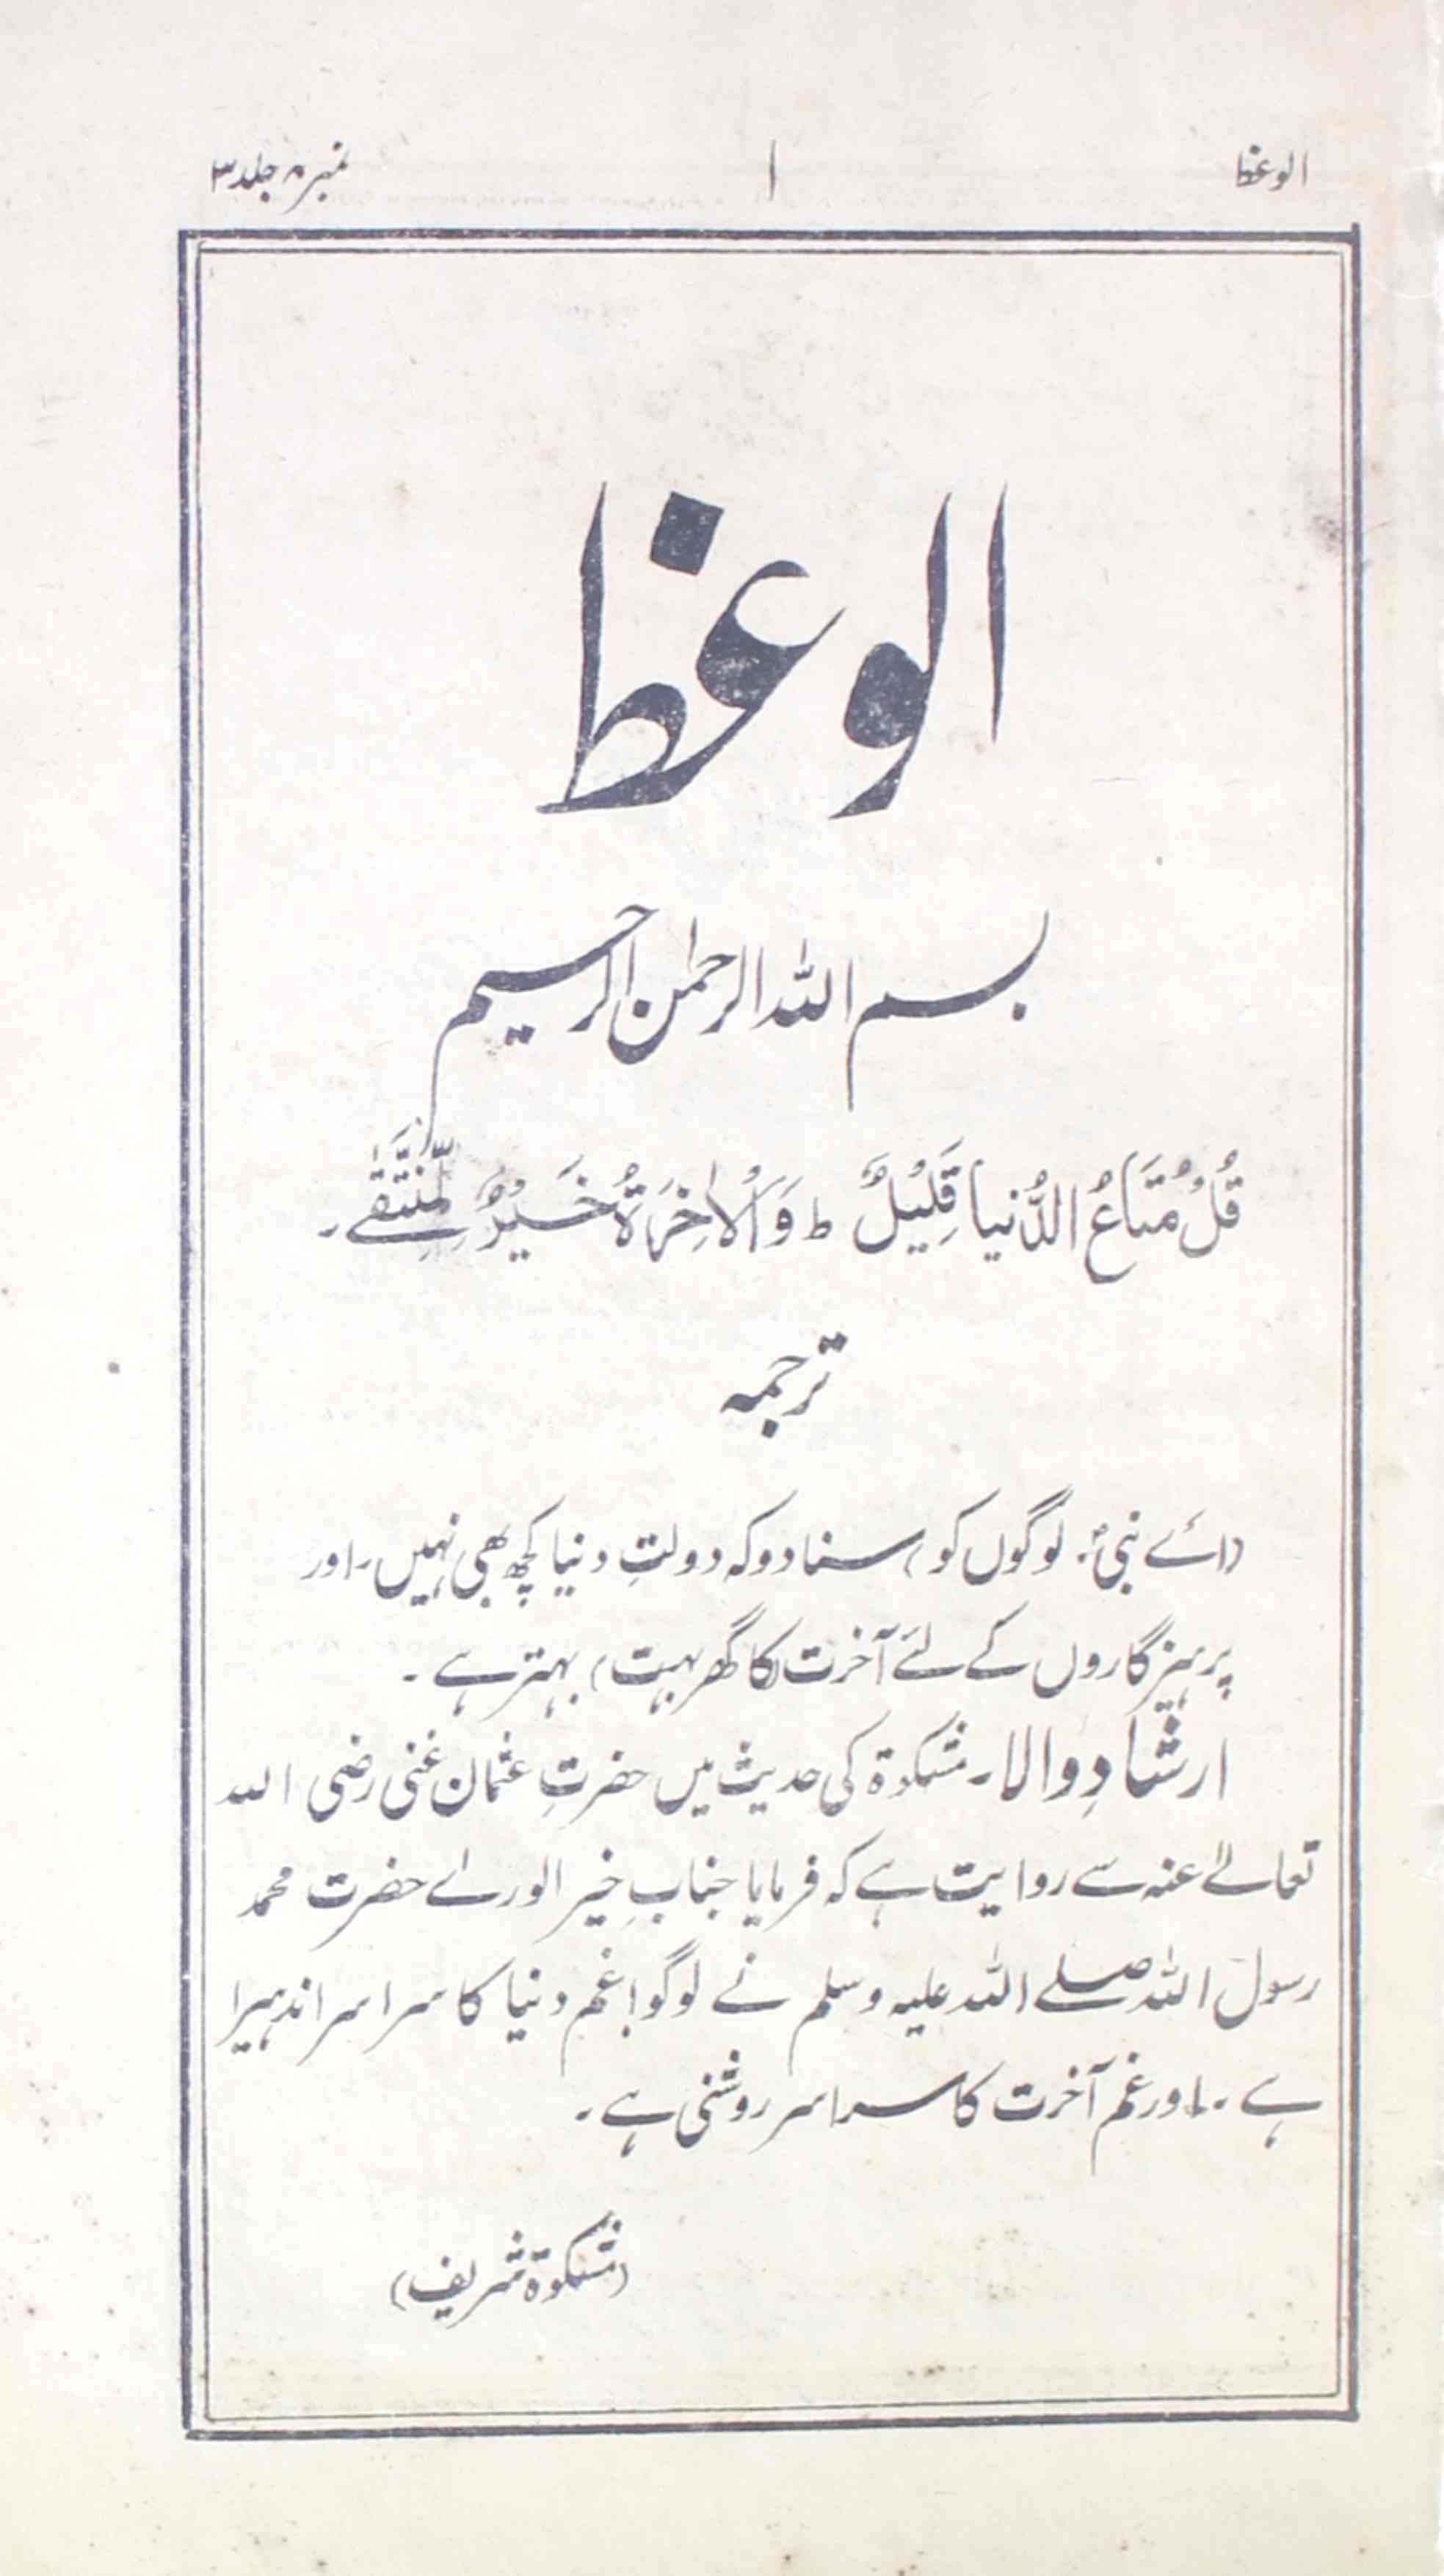 الوعظ ۱ نمبر۸ جلد۳
الوعظ
بسم اللہ الرحمٰن الرحیم
قُلْ مَتَاعُ الدُّنیا قَلِیْلٌ ط وَالْاٰخِرَۃُ خَیْرٌ لِّمَنِ اتَّقٰے۔
ترجمہ
(اے نبیؐ! لوگوں کو) سنادو کہ دولتِ دنیا کچھ بھی نہیں۔ اور
پرہیزگاروں کے لئے آخرت (کا گھر بہت) بہتر ہے۔
ارشادِ والا۔ مشکوٰۃ کی حدیث میں حضرتِ عثمان غنی رضی اللہ
تعالےٰ عنہ سے روایت ہے کہ فرمایا جنابِ خیر الورےٰ حضرت محمد
رسول اللہ صلے اللہ علیہ وسلم نے لوگو! غم دنیا کا سراسر اندہیرا
ہے۔ اور غم آخرت کا سراسر روشنی ہے۔
(مشکوٰۃ شریف)